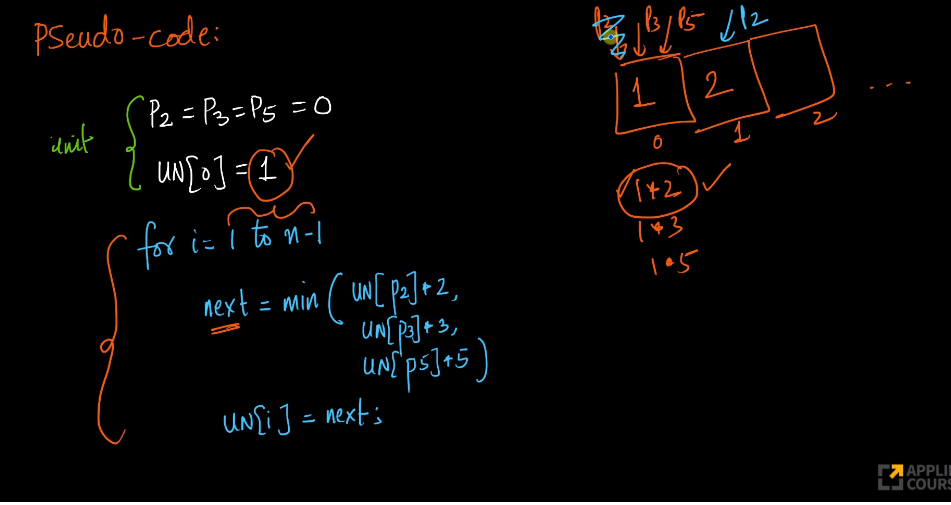 PSeudo-code:
init
P2 = P3 = P5 = 0
UN[0] = 1
for i = 1 to n-1
next = min ( UN[P2]*2,
UN[P3]*3,
UN[P5]*5 )
UN[i] = next;
P3 P5 P2
1 2 ...
0 1 2
1*2
1*3
1*5
APPLI
COURS